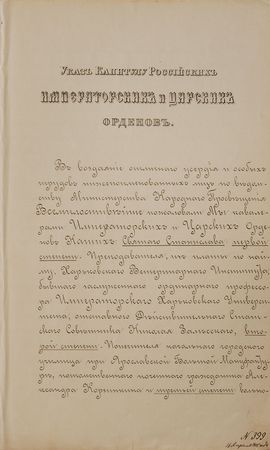 Указъ Капитулу Россійскихъ
ИМПЕРАТОРСКИХЪ и ЦАРСКИХЪ
ОРДЕНОВЪ.
Въ воздаяніе отличнаго усердія и особыхъ
трудовъ нижепоименованныхъ лицъ по вѣдом-
ству Министерства Народнаго Просвѣщенія
Всемилостивѣйше пожаловали Мы кавале-
рами Императорскихъ и Царскихъ Орде-
новъ Нашихъ: Святаго Станислава первой
степени: Преподавателя, изъ платы по най-
му, Харьковскаго Ветеринарнаго Института,
бывшаго заслуженнаго ординарнаго профессо-
ра Императорскаго Харьковскаго Универси-
тета, отставного Дѣйствительнаго Статс-
каго Совѣтника Николая вто-
рой степени: Попечителя начальнаго городского
училища при Ярославской Большой Мануфакту-
рѣ, потомственнаго почетнаго гражданина Але-
ксандра Корзинкина и третьей степени
№ 399